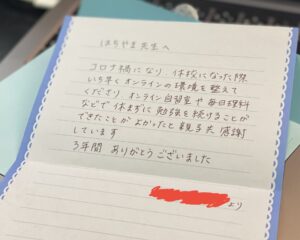 はちやま先生へ
コロナ禍になり 休校になった際
いち早くオンラインの環境を整えて
くださり オンライン自習室や 毎日理科
などで 休まずに 勉強を続けることが
できたことが よかったと 親子共 感謝
しています
3年間 ありがとう ございました
より